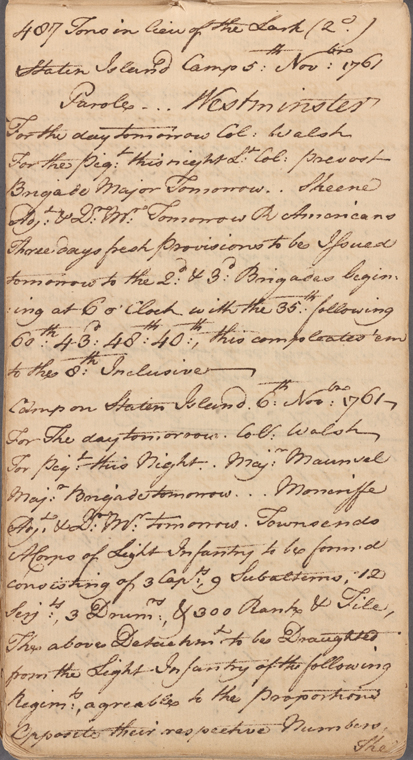 487 Tons in lieu of the Lark (2.d)
Staten Island Camp 5:th Nov:bre 1761
Parole - - - Westminster
For the day tomorrow Col: Walsh
For the Piq:t this night L:t Col: Prevost
Brigade Major Tomorrow . . Skeene
Adj:t & Q:r M:r Tomorrow R Americans
Three days fresh Provisions to be Issued
tomorrow to the 2:d & 3:d Brigades begin-
:ing at 6 o'Clock with the 35:th following
60:th 43:d 48:th 40:th, this compleates 'em
to the 8:th Inclusive
Camp on Staten Island 6:th Nov:bre 1761
For The day tomorrow. Col: Walsh
For Piq:t this Night . . Maj:r Maunsel
Maj:r Brigade tomorrow . . . Moncriffe
Adj:t & Q:r M:r tomorrow. Townsends
A Corps of Light Infantry to be form'd
consisting of 3 Cap:ts, 9 Subalterns, 12
Serj:ts, 3 Drum:rs, & 300 Rank & File,
The above Detachm:t to be Draughted
from the Light Infantry of the following
Regim:ts, agreable to the Proportions
Opposite their respective Numbers,
The